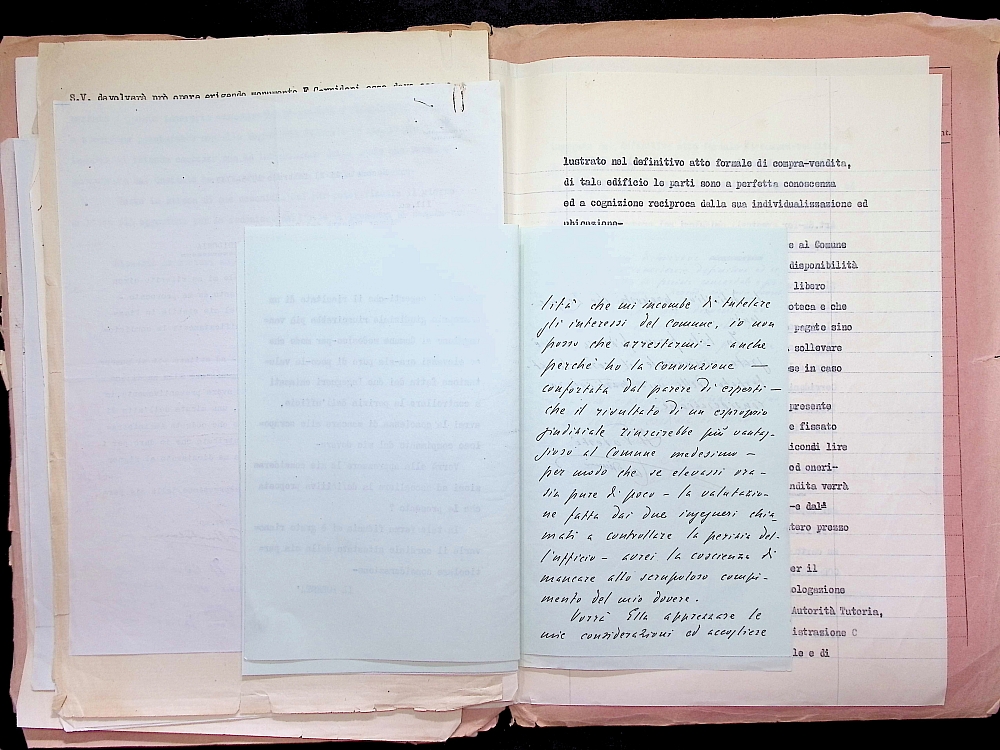 S.V. devolverà prò opera erigendo monumento F. Corridoni
lustrato nel definitivo atto formale di compra-vendita,
di tale edificio le parti sono a perfetta conoscenza
ed a cognizione reciproca dalla sua individualizzazione ed
ubicazione-
e al Comune
disponibilità
libero
oteca e che
pagate sino
sollevare
se in caso
presente
e fissato
icondi lire
od oneri-
ndita verrà
-e dalª
tero prezzo
er il
ologazione
Autorità Tutoria,
istrazione C
le e di
lità che mi incombe di tutelare
gli interessi del comune, io non
posso che arrestermi - anche
perchè ho la convinzione —
confortata dal parere di esperti —
che il risultato di un esproprio
giudiziale riuscirebbe più vantag-
gioso al Comune medesimo -
per modo che se elevassi ora -
sia pure di poco - la valutazio-
ne fatta dai due ingegneri chia-
mati a controllare la perizia del-
l'ufficio - avrei la coscienza di
mancare allo scrupoloso compi-
mento del mio dovere.
Vorrà Ella apprezzare le
mie considerazioni ed accogliere